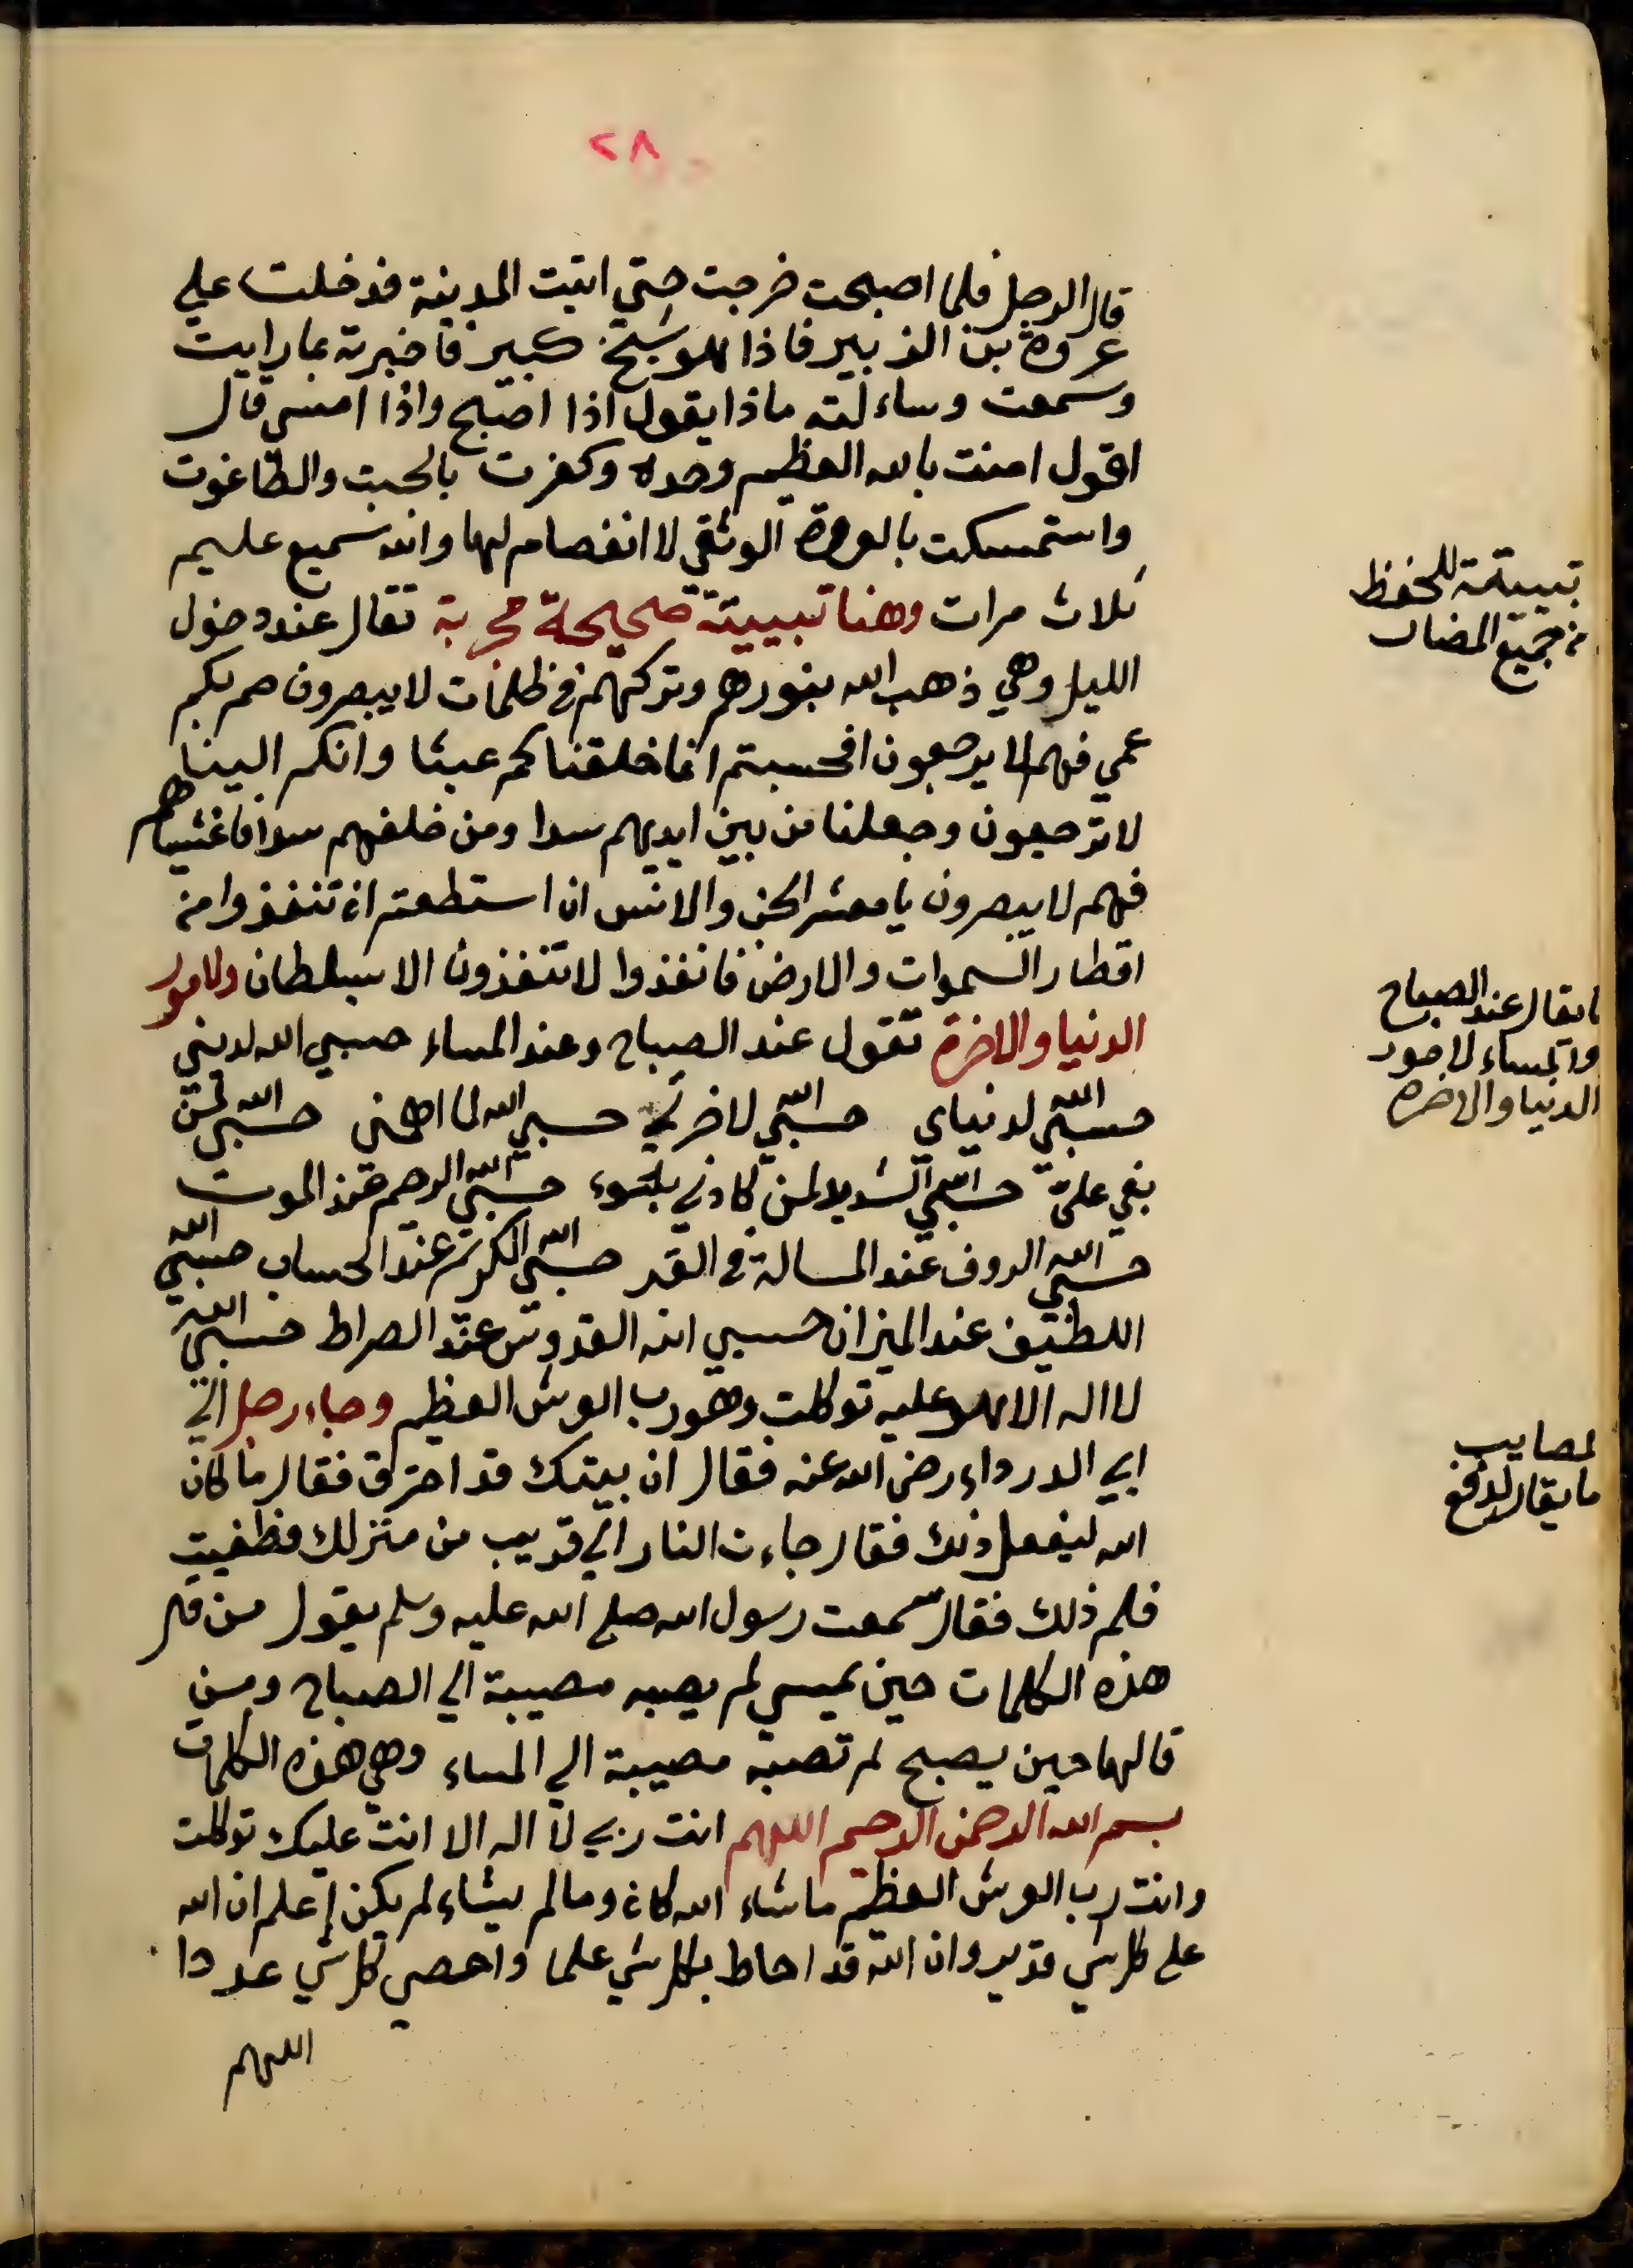 ٢٨
قال الرجل فلما اصبحت خرجت حتي اتيت المدينة فدخلت علي
عروة بن الزبير فاذا هو شيخ كبير فاخبرته بما رايت
وسمعت وساءلته ماذا يقول اذا اصبح واذا امسي قال
اقول امنت بالله العظيم وحده وكفرت بالجبت والطاغوت
واستمسكت بالعروة الوثقي لا انفصام لها والله سميع عليم
ثلاث مرات وهنا تبييتة صحيحة مجربة تقال عند دخول
الليل وهي ذهب الله بنورهم وتركهم في ظلمات لا يبصرون صم بكم
عمي فهم لا يرجعون افحسبتم انما خلقناكم عبثا وانكم الينا
لا ترجعون وجعلنا من بين ايديهم سدا ومن خلفهم سدا فاغشيناهم
فهم لا يبصرون يا معشر الجن والانس ان استطعتم ان تنفذوا من
اقطار السموات والارض فانفذوا لا تنفذون الا بسلطان ولامور
الدنيا والاخرة تقول عند الصباح وعند المساء حسبي الله لديني
حسبي الله لدنياي حسبي الله لاخرتي حسبي الله لما اهمني حسبي الله لمن
بغي علي حسبي الله الشديد لمن كادني بسوء حسبي الله الرحيم عند الموت
حسبي الله الروف عند المسالة في القبر حسبي الله الكريم عند الحساب حسبي الله
اللطيف عند الميزان حسبي الله القدوس عند الصراط حسبي الله
لا اله الا هو عليه توكلت وهو رب العرش العظيم وجاء رجل الي
ابي الدرداء رضي الله عنه فقال ان بيتك قد احترق فقال ما كان
الله ليفعل ذلك فقال جاءت النار الي قريب من منزلك فطفيت
فلم ذلك فقال سمعت رسول الله صلي الله عليه وسلم يقول من قال
هذه الكلمات حين يمسي لم يصبه مصيبة الي الصباح ومن
قالها حين يصبح لم تصبه مصيبة الي المساء وهي هذه الكلمات
بسم الله الرحمن الرحيم اللهم انت ربي لا اله الا انت عليك توكلت
وانت رب العرش العظيم ما شاء الله كان وما لم يشاء لم يكن اعلم ان الله
علي كل شي قدير وان الله قد احاط بكل شي علما واحصي كل شي عددا
اللهم
تبييتة للحفظ
من جميع المضار
ما يقال عند الصباح
والمساء لامور
الدنيا والاخرة
لمصايب
ما يقال لدفع